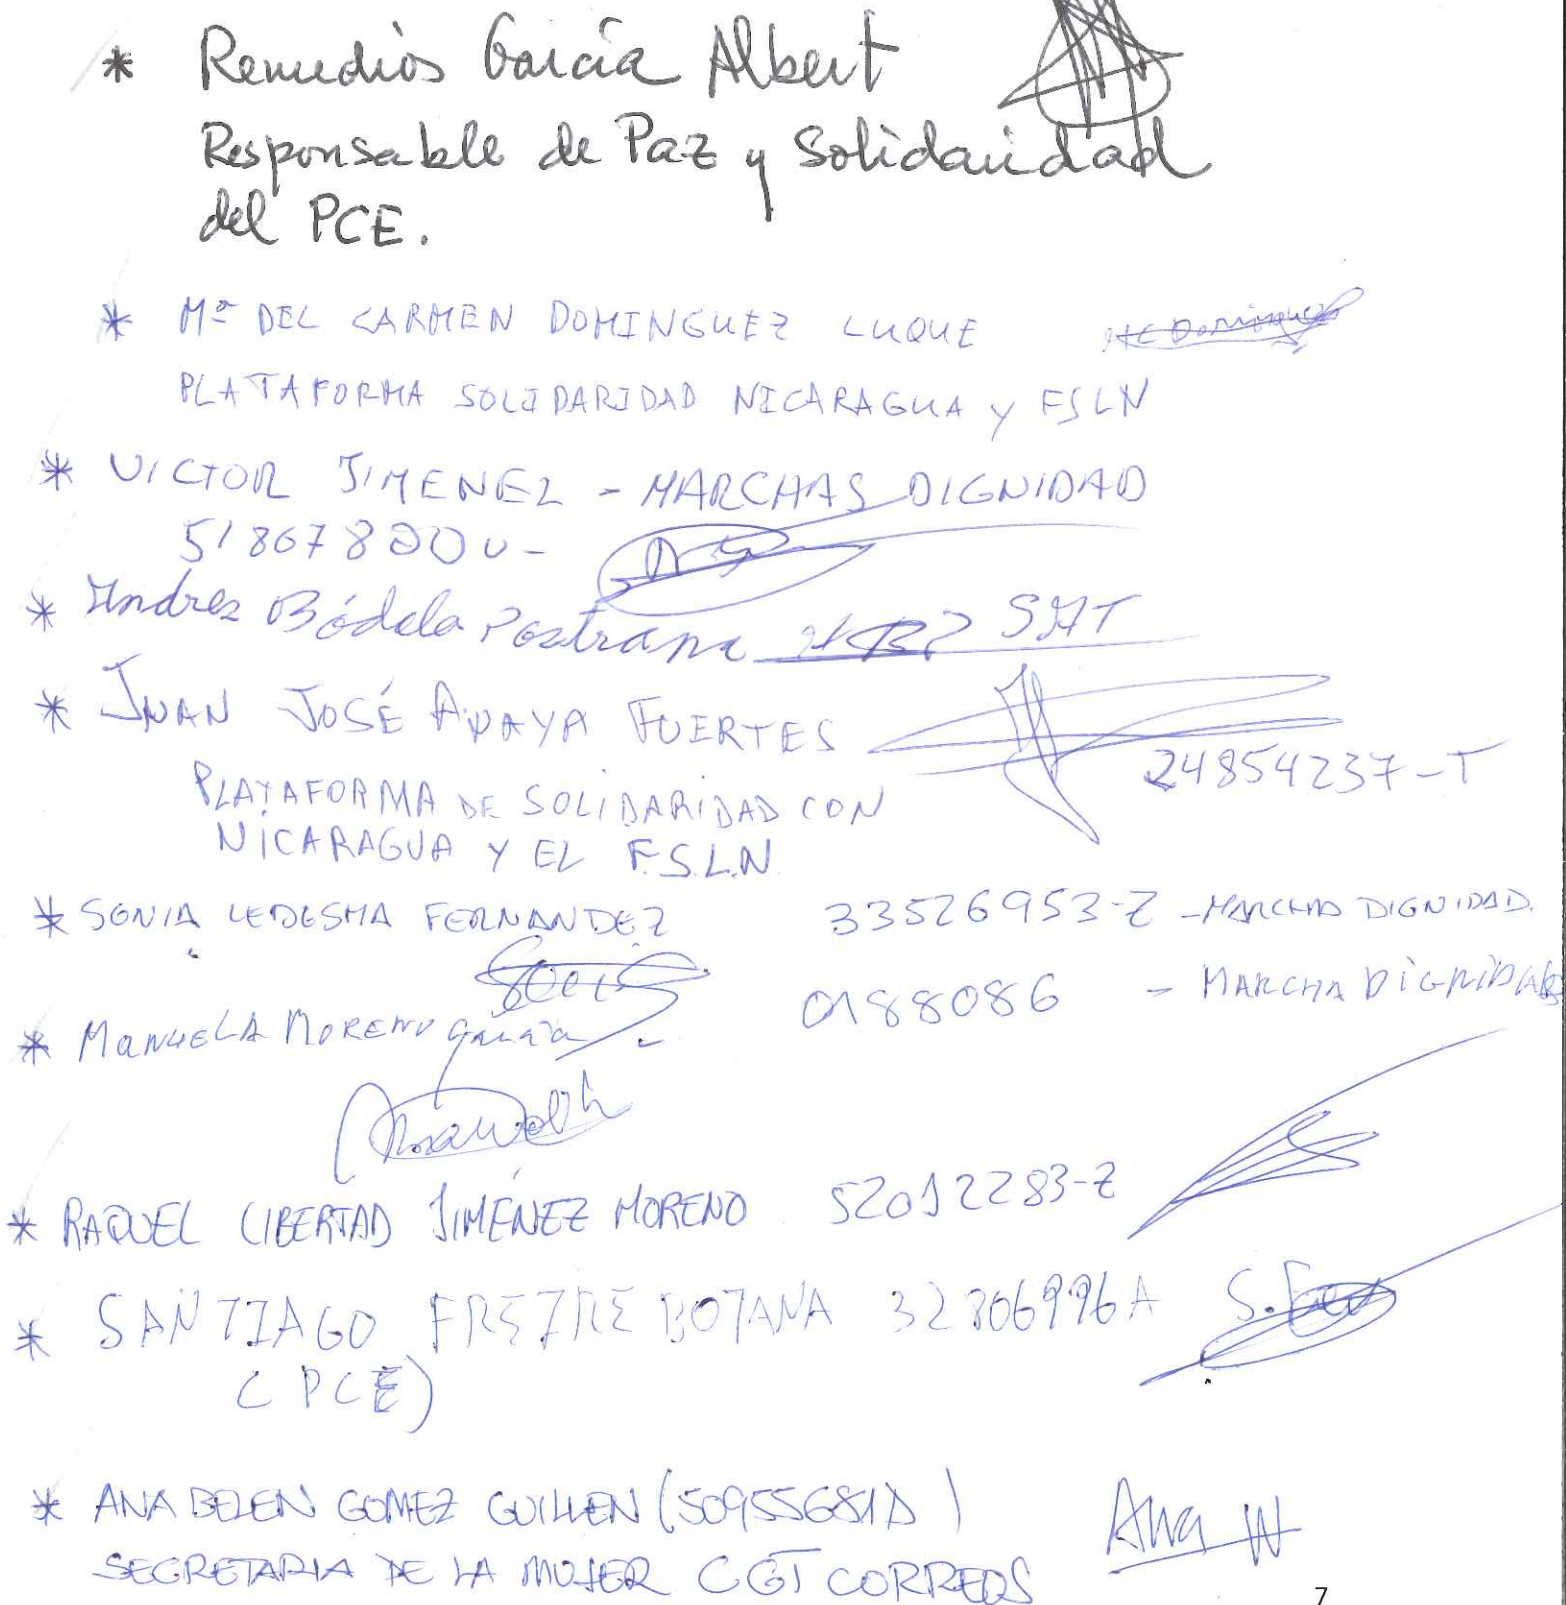 * Remedios García Albert
Responsable de Paz y Solidaridad
del PCE.
* Mª DEL CARMEN DOMINGUEZ LUQUE
PLATAFORMA SOLIDARIDAD NICARAGUA y FSLN
* VICTOR JIMENEZ - MARCHAS DIGNIDAD
* Andres Bódalo Pastrana SAT
* JUAN JOSÉ ANAYA FUERTES
24854237-T
PLATAFORMA DE SOLIDARIDAD CON
NICARAGUA Y EL F.S.L.N
* SONIA LEDESMA FERNANDEZ 33526953-Z - MARCHAS DIGNIDAD.
* MANUELA MORENO García 0188086 - MARCHA DIGNIDAD
* RAQUEL LIBERTAD JIMÉNEZ MORENO 52012283-Z
* SANTIAGO FREIRE BOTANA 32806996A
(PCE)
* ANA BELEN GOMEZ GUILLEN (50955681D)
SECRETARIA DE LA MUJER CGT CORREOS
Ana
7